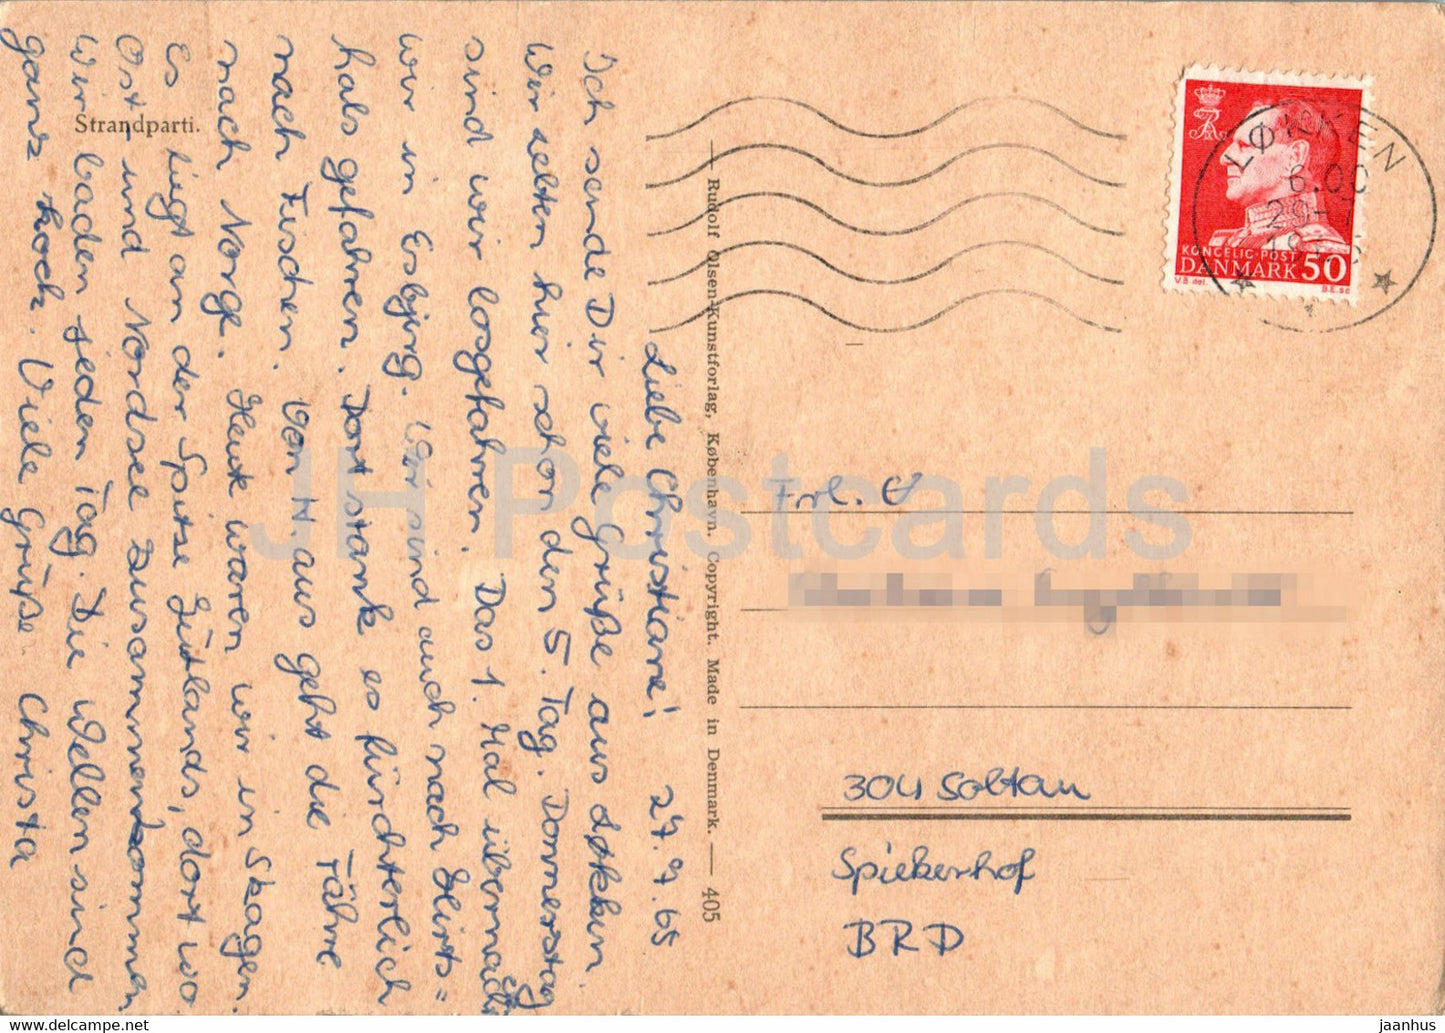 Strandparti.
Liebe Christiane! 27.7.65
Ich sende Dir viele Grüße aus Løkken.
Wir zelten hier schon den 5. Tag. Donnerstag
sind wir losgefahren. Das 1. Mal übernachteten
wir in Esbjerg. Wir sind auch nach Hirts=
hals gefahren. Dort stank es fürchterlich
nach Fischen. Von H. aus geht die Fähre
nach Norge. Heute waren wir in Skagen.
Es liegt an der Spitze Jütlands, dort wo
Ost- und Nordsee zusammenkommen
Wir baden jeden Tag. Die Wellen sind
ganz hoch. Viele Grüße Christa
— Rudolf Olsen Kunstforlag, København. Copyright. Made in Denmark. — 405
LØKKEN
6.00
KONGELIG POST
DANMARK 50
V.B. del. B.E. sc
Frl.
304 Soltau
Spiekerhof
BRD
JH Postcards
delcampe.net
jaanhus